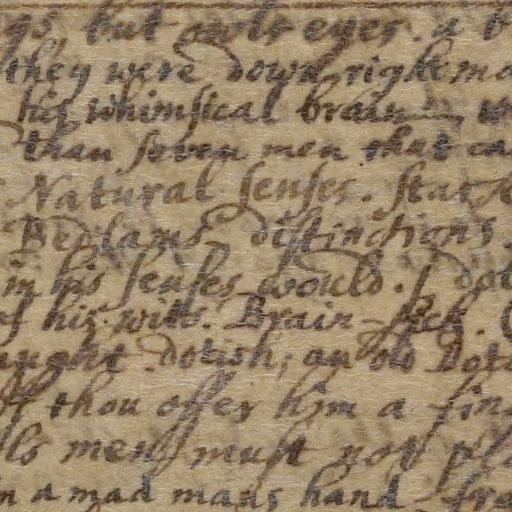 but owls eyes. a b
they were down right ma
his whimsical brain
than seven men that ca
Natural senses. stark
Bedlams distinctions.
in his senses would. I dot
of his wits. Brain-sick.
dotish; an old Dota
thou offer him a fin
mens must not pl
in a mad mans hand. fra